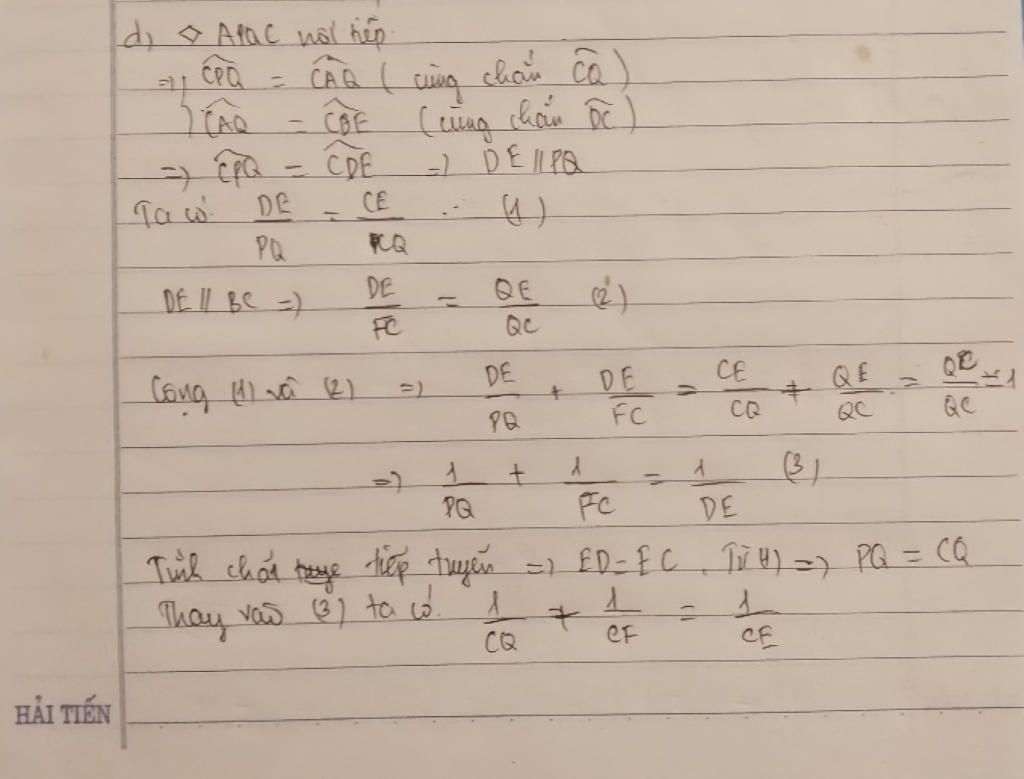 d, ◇ APQC nội tiếp.
=> { \widehat{CPQ} = \widehat{CAQ} ( cùng chắn \overset{\frown}{CQ} )
\widehat{CAQ} = \widehat{CDE} (cùng chắn \overset{\frown}{DC})
=> \widehat{CPQ} = \widehat{CDE} => DE // PQ
Ta có. DE/PQ = CE/CQ (1)
DE // BC => DE/FC = QE/QC (2)
Cộng (1) và (2) => DE/PQ + DE/FC = CE/CQ + QE/QC = QC/QC = 1
=> 1/PQ + 1/FC = 1/DE (3)
Tính chất tiếp tuyến => ED = EC. Từ (1) => PQ = CQ
Thay vào (3) ta có. 1/CQ + 1/CF = 1/CE
HẢI TIẾN